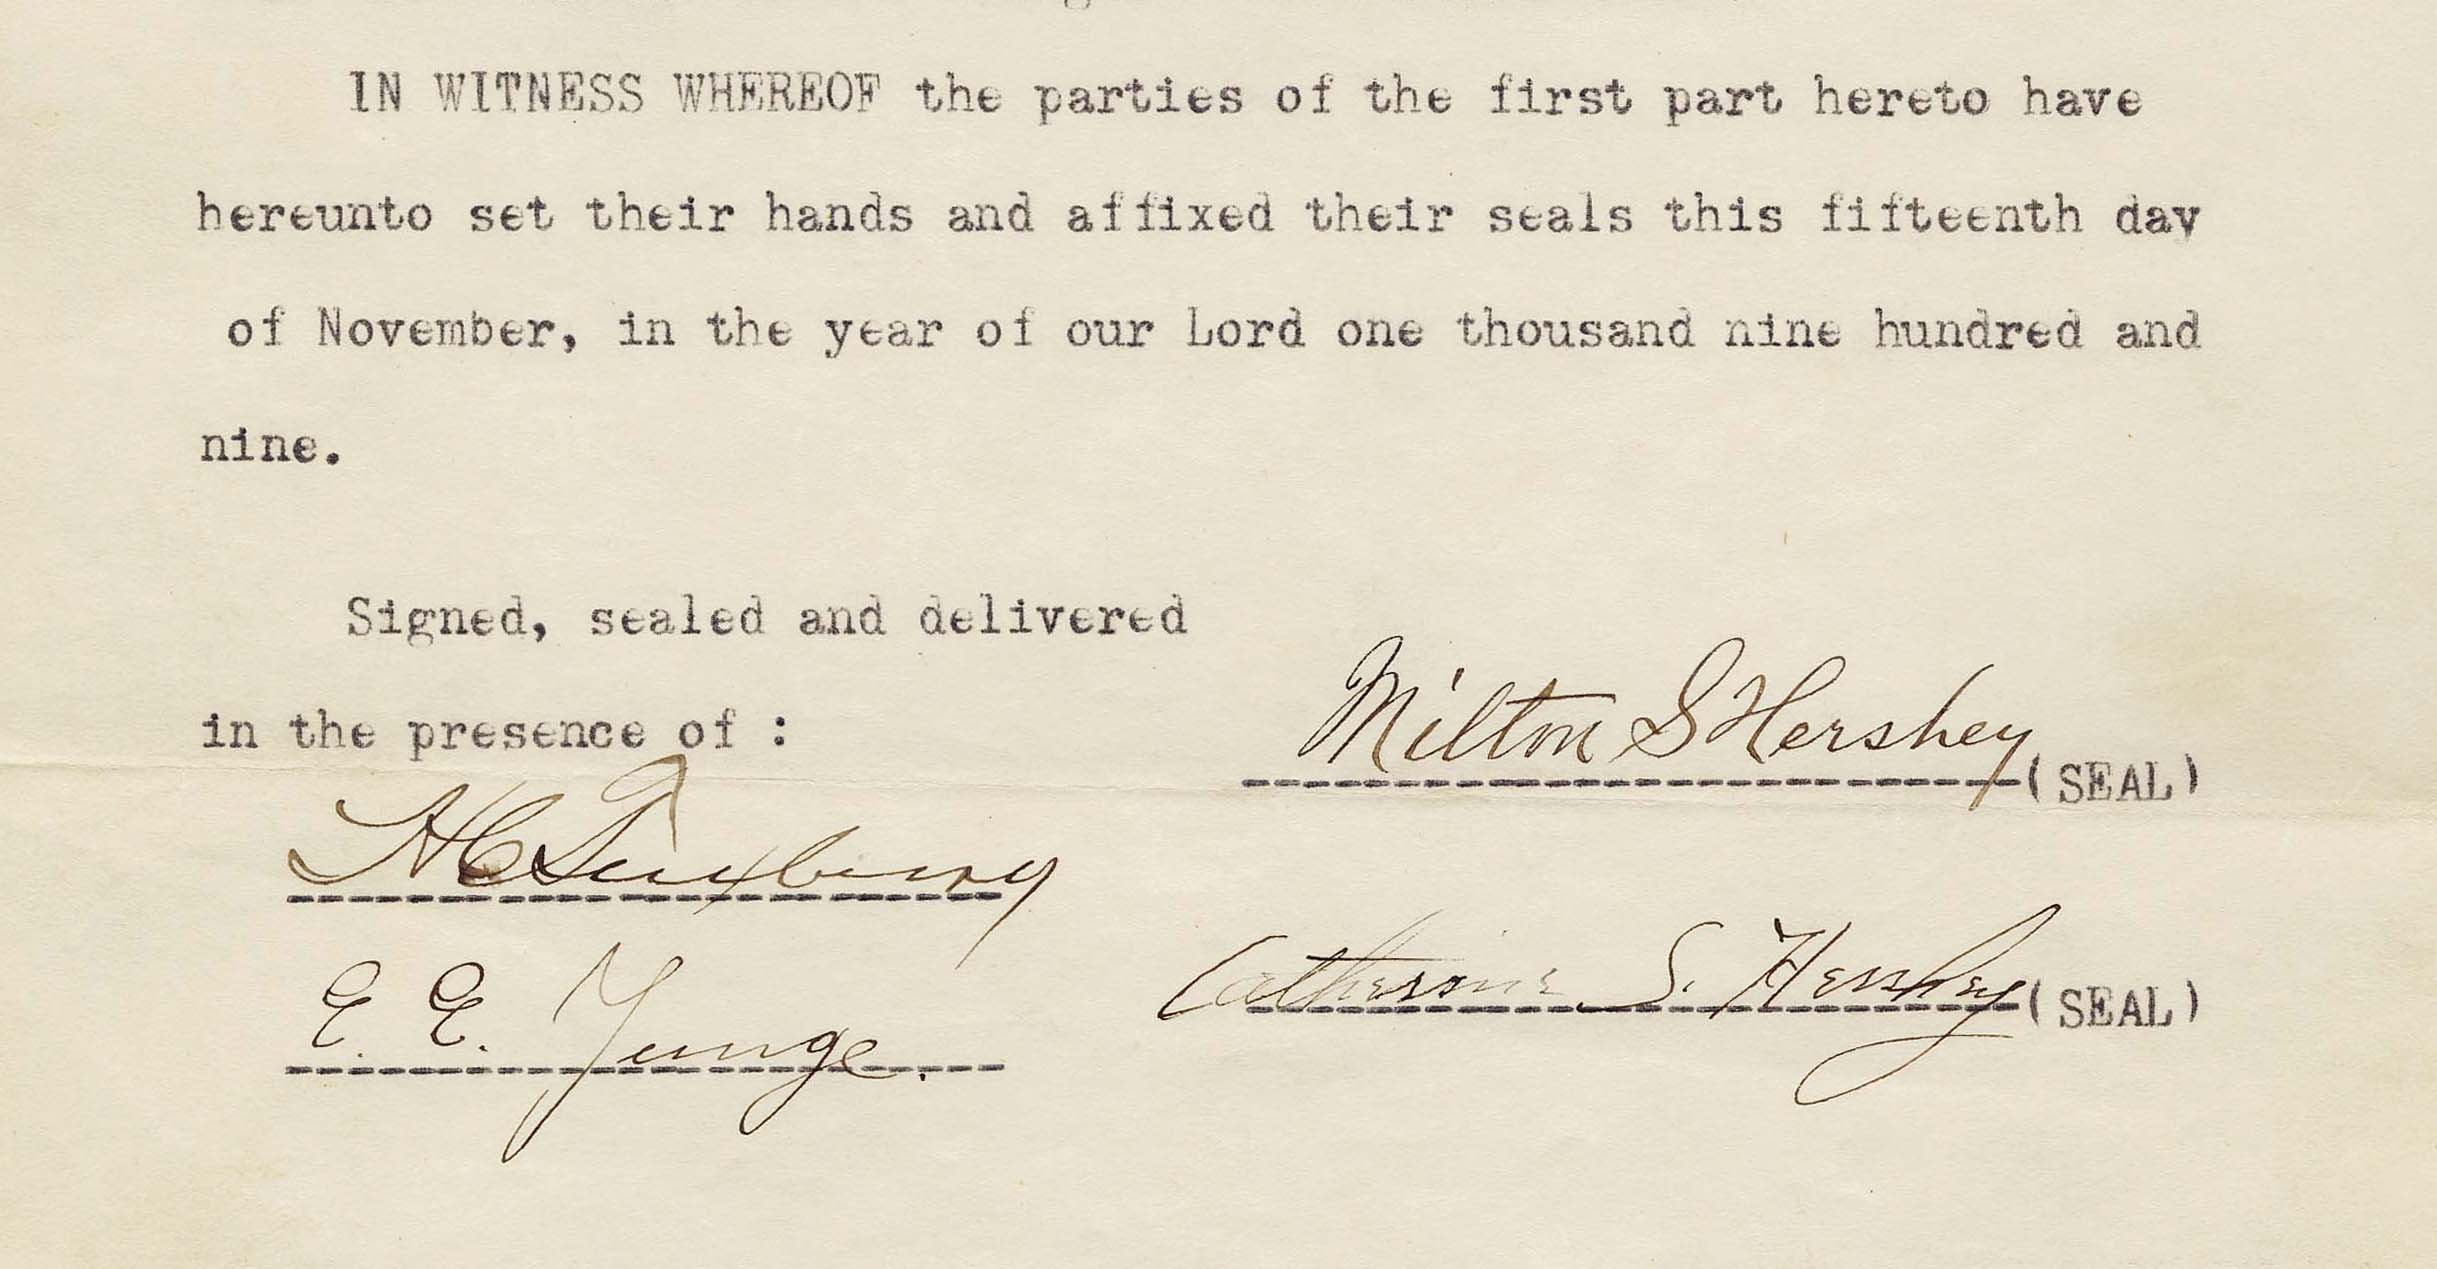 IN WITNESS WHEREOF the parties of the first part hereto have
hereunto set their hands and affixed their seals this fifteenth day
of November, in the year of our Lord one thousand nine hundred and
nine.
Signed, sealed and delivered
in the presence of :
Milton S Hershey
(SEAL)
H C
E. E.
Catherine S. Hershey
(SEAL)